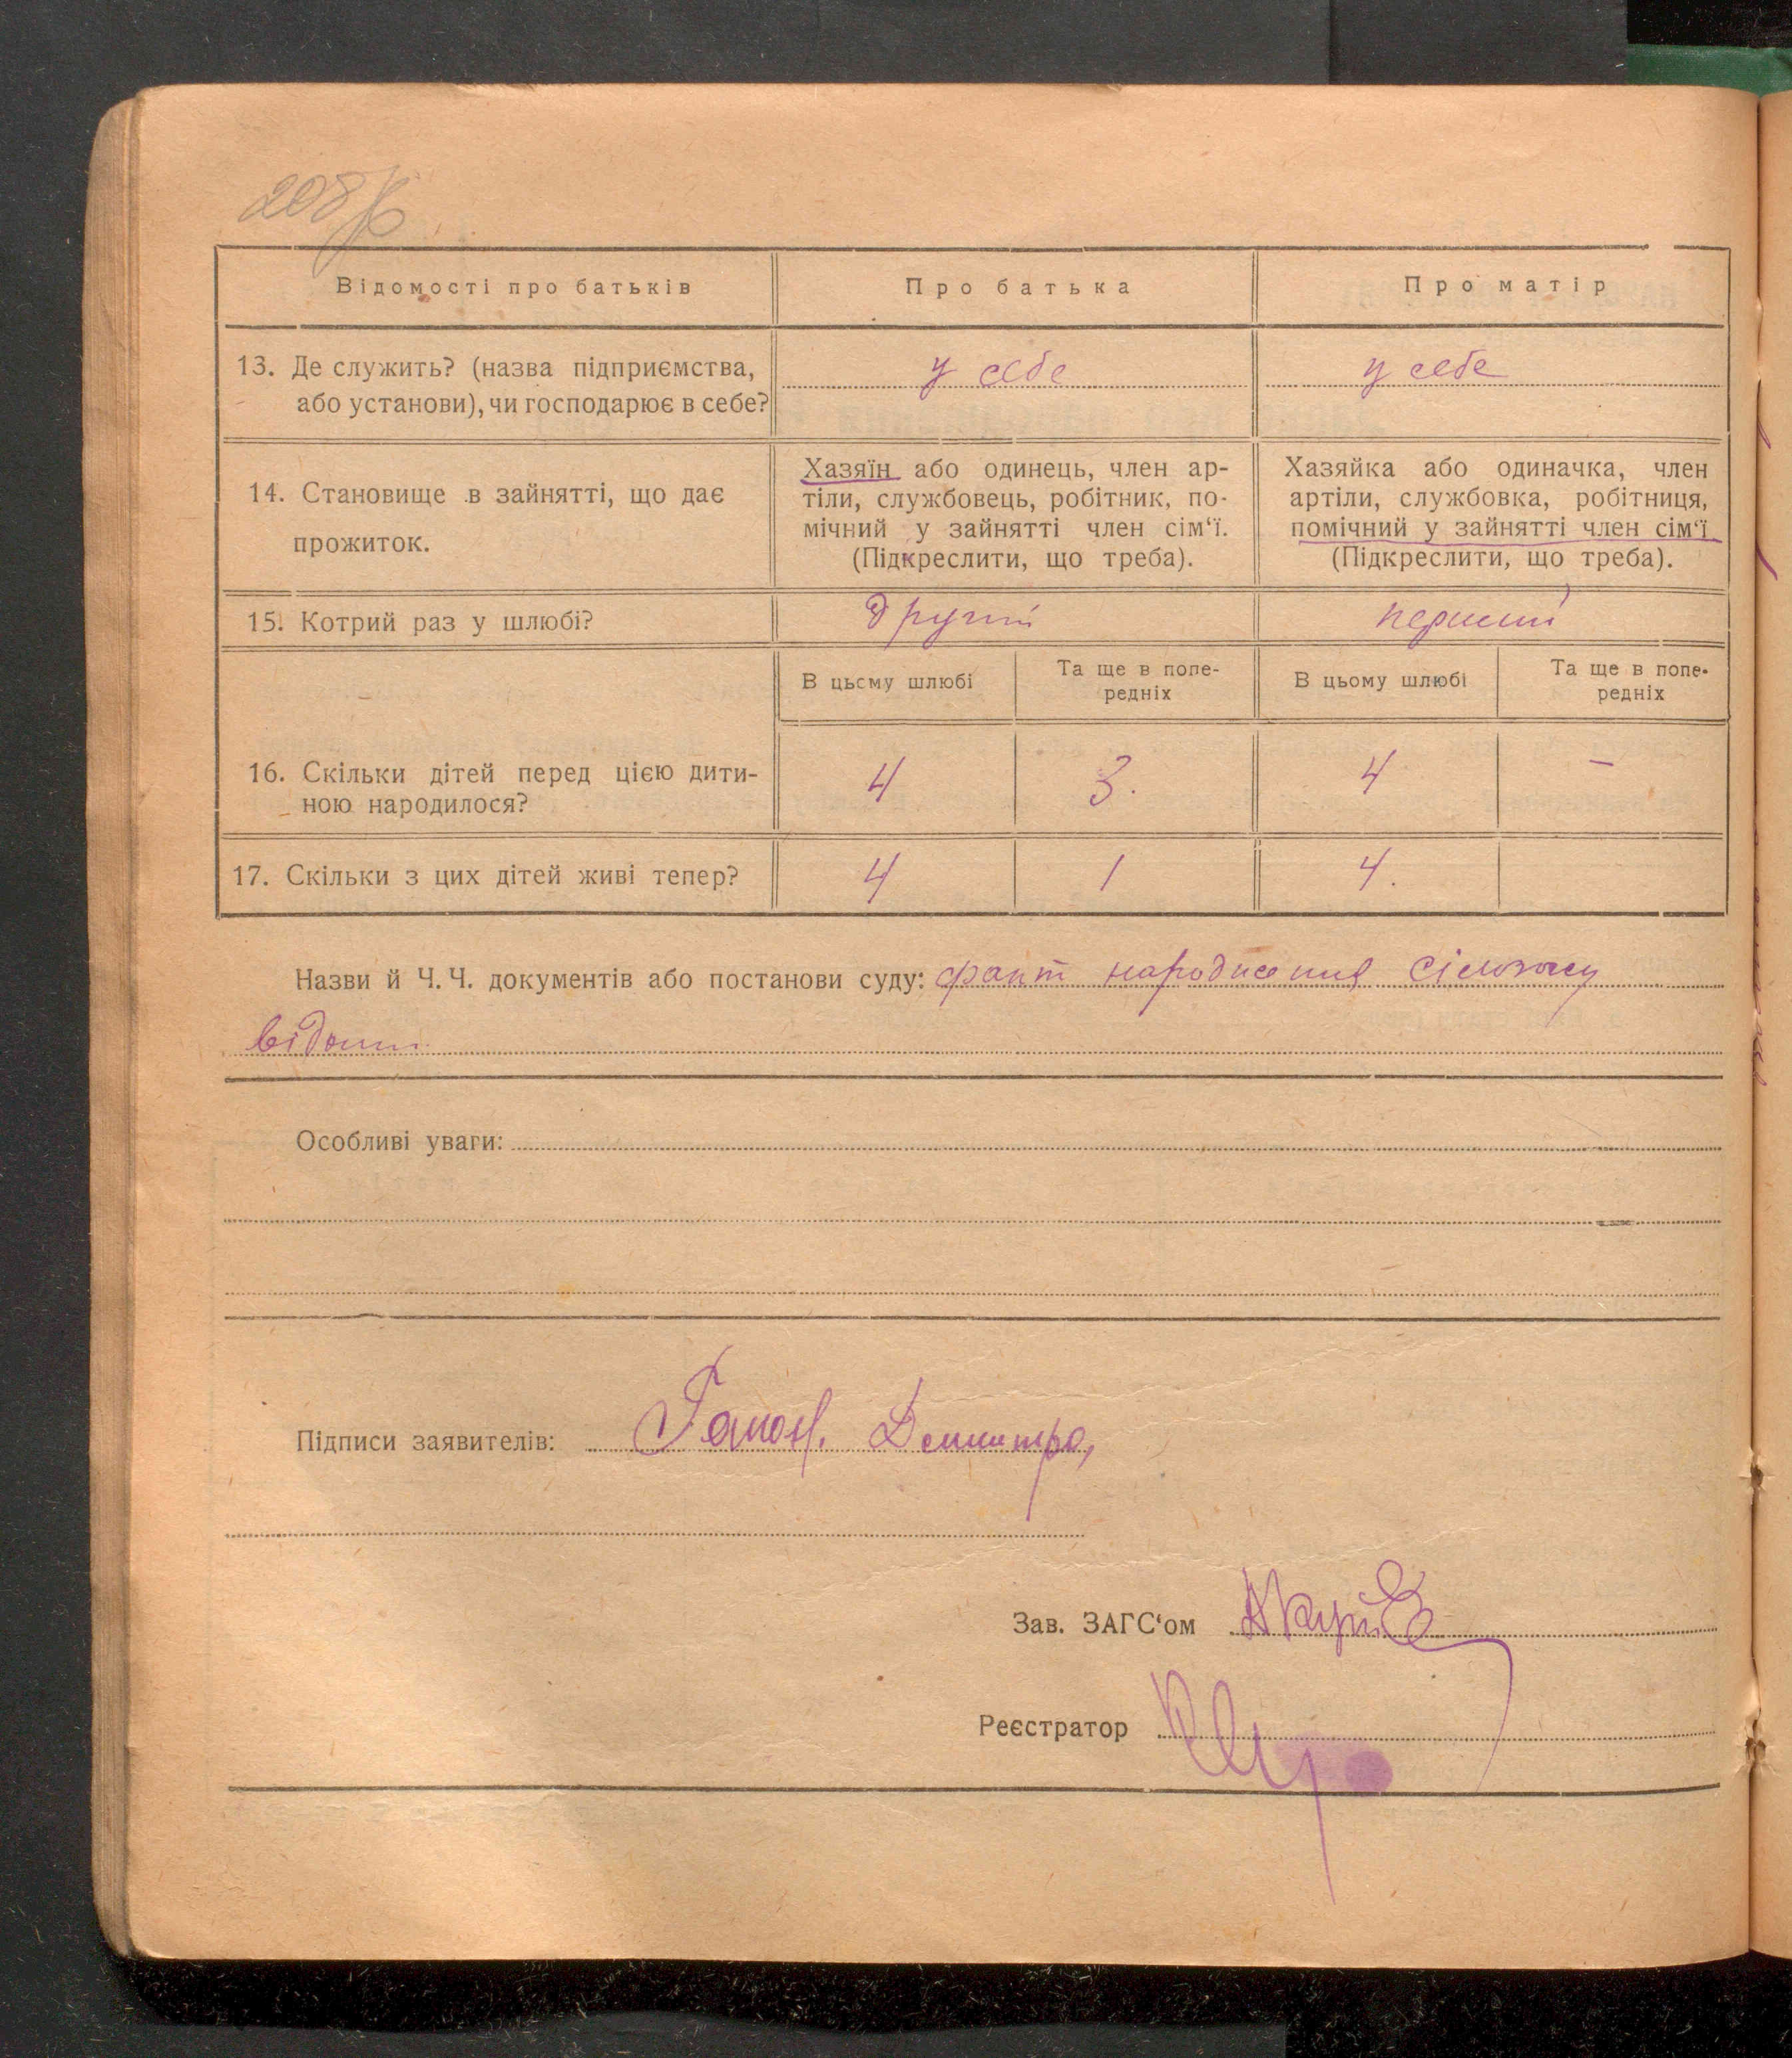 208
Відомості про батьків
Про батька
Про матір
13. Де служить? (назва підприємства,
або установи), чи господарює в себе?
у себе
у себе
14. Становище в зайнятті, що дає
прожиток.
Хазяїн або одинець, член ар-
тіли, службовець, робітник, по-
мічний у зайнятті член сім'ї.
(Підкреслити, що треба).
Хазяйка або одиначка, член
артіли, службовка, робітниця,
помічний у зайнятті член сім'ї
(Підкреслити, що треба).
15. Котрий раз у шлюбі?
другий
перший
В цьому шлюбі
Та ще в попе-
редніх
В цьому шлюбі
Та ще в попе-
редніх
16. Скільки дітей перед цією дити-
ною народилося?
4
3.
4
–
17. Скільки з цих дітей живі тепер?
4
1
4.
Назви й Ч. Ч. документів або постанови суду: факт народження
Особливі уваги:
Підписи заявителів:
Зав. ЗАГС'ом
Реєстратор